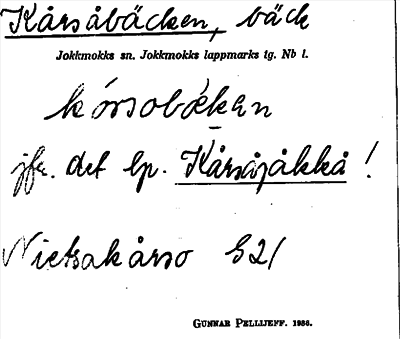 Kårsåbäcken, bäck
Jokkmokks sn. Jokkmokks lappmarks tg. Nb l.
kårsobäken
jfr. det lp. Kårsåjåkkå !
Nietsakårso S21
GUNNAR PELLIJEFF. 1986.